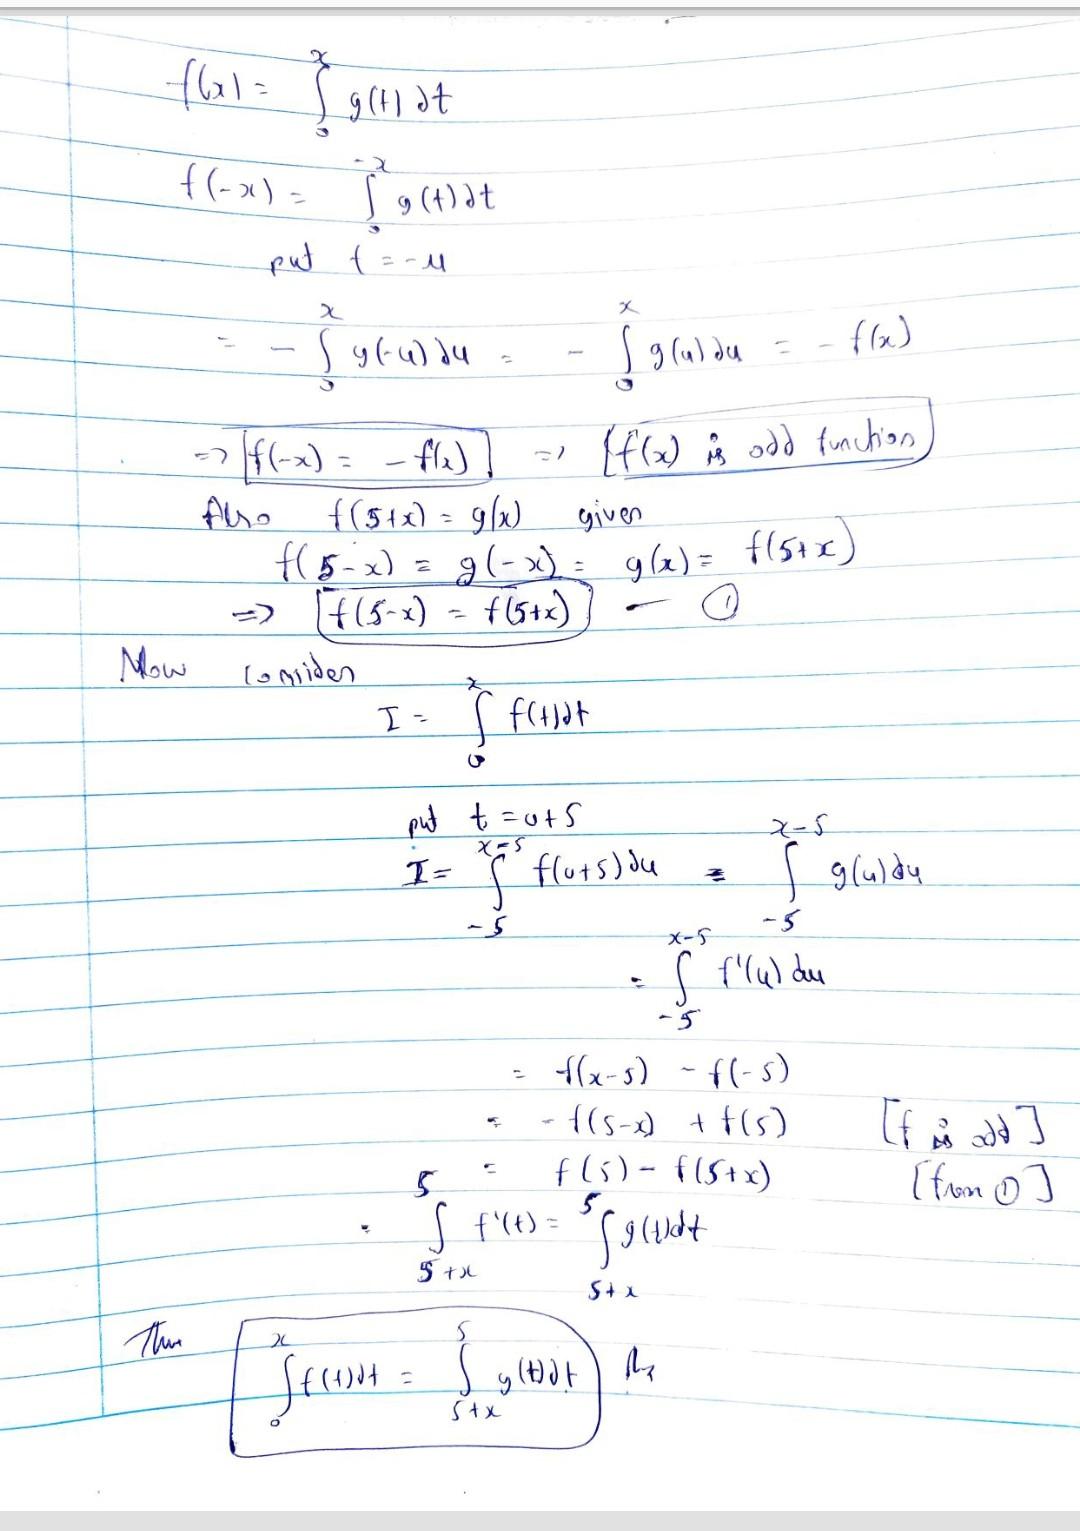 f(x) = ∫₀ˣ g(t) dt
f(-x) = ∫₀⁻ˣ g(t) dt
put t = -u
= - ∫₀ˣ g(-u) du = - ∫₀ˣ g(u) du = - f(x)
=> [f(-x) = - f(x)] => [f(x) is odd function]
Also f(5+x) = g(x) given
f(5-x) = g(-x) = g(x) = f(5+x)
=> [f(5-x) = f(5+x)] — ①
Now consider
I = ∫₀ˣ f(t) dt
put t = u+5
I = ∫₋₅ˣ⁻⁵ f(u+5) du = ∫₋₅ˣ⁻⁵ g(u) du
= ∫₋₅ˣ⁻⁵ f'(u) du
= f(x-5) - f(-5)
= - f(5-x) + f(5) [f is odd]
= f(5) - f(5+x) [from ①]
= ∫₅₊ₓ⁵ f'(t) = ∫₅₊ₓ⁵ g(t) dt
Thus ∫₀ˣ f(t) dt = ∫₅₊ₓ⁵ g(t) dt